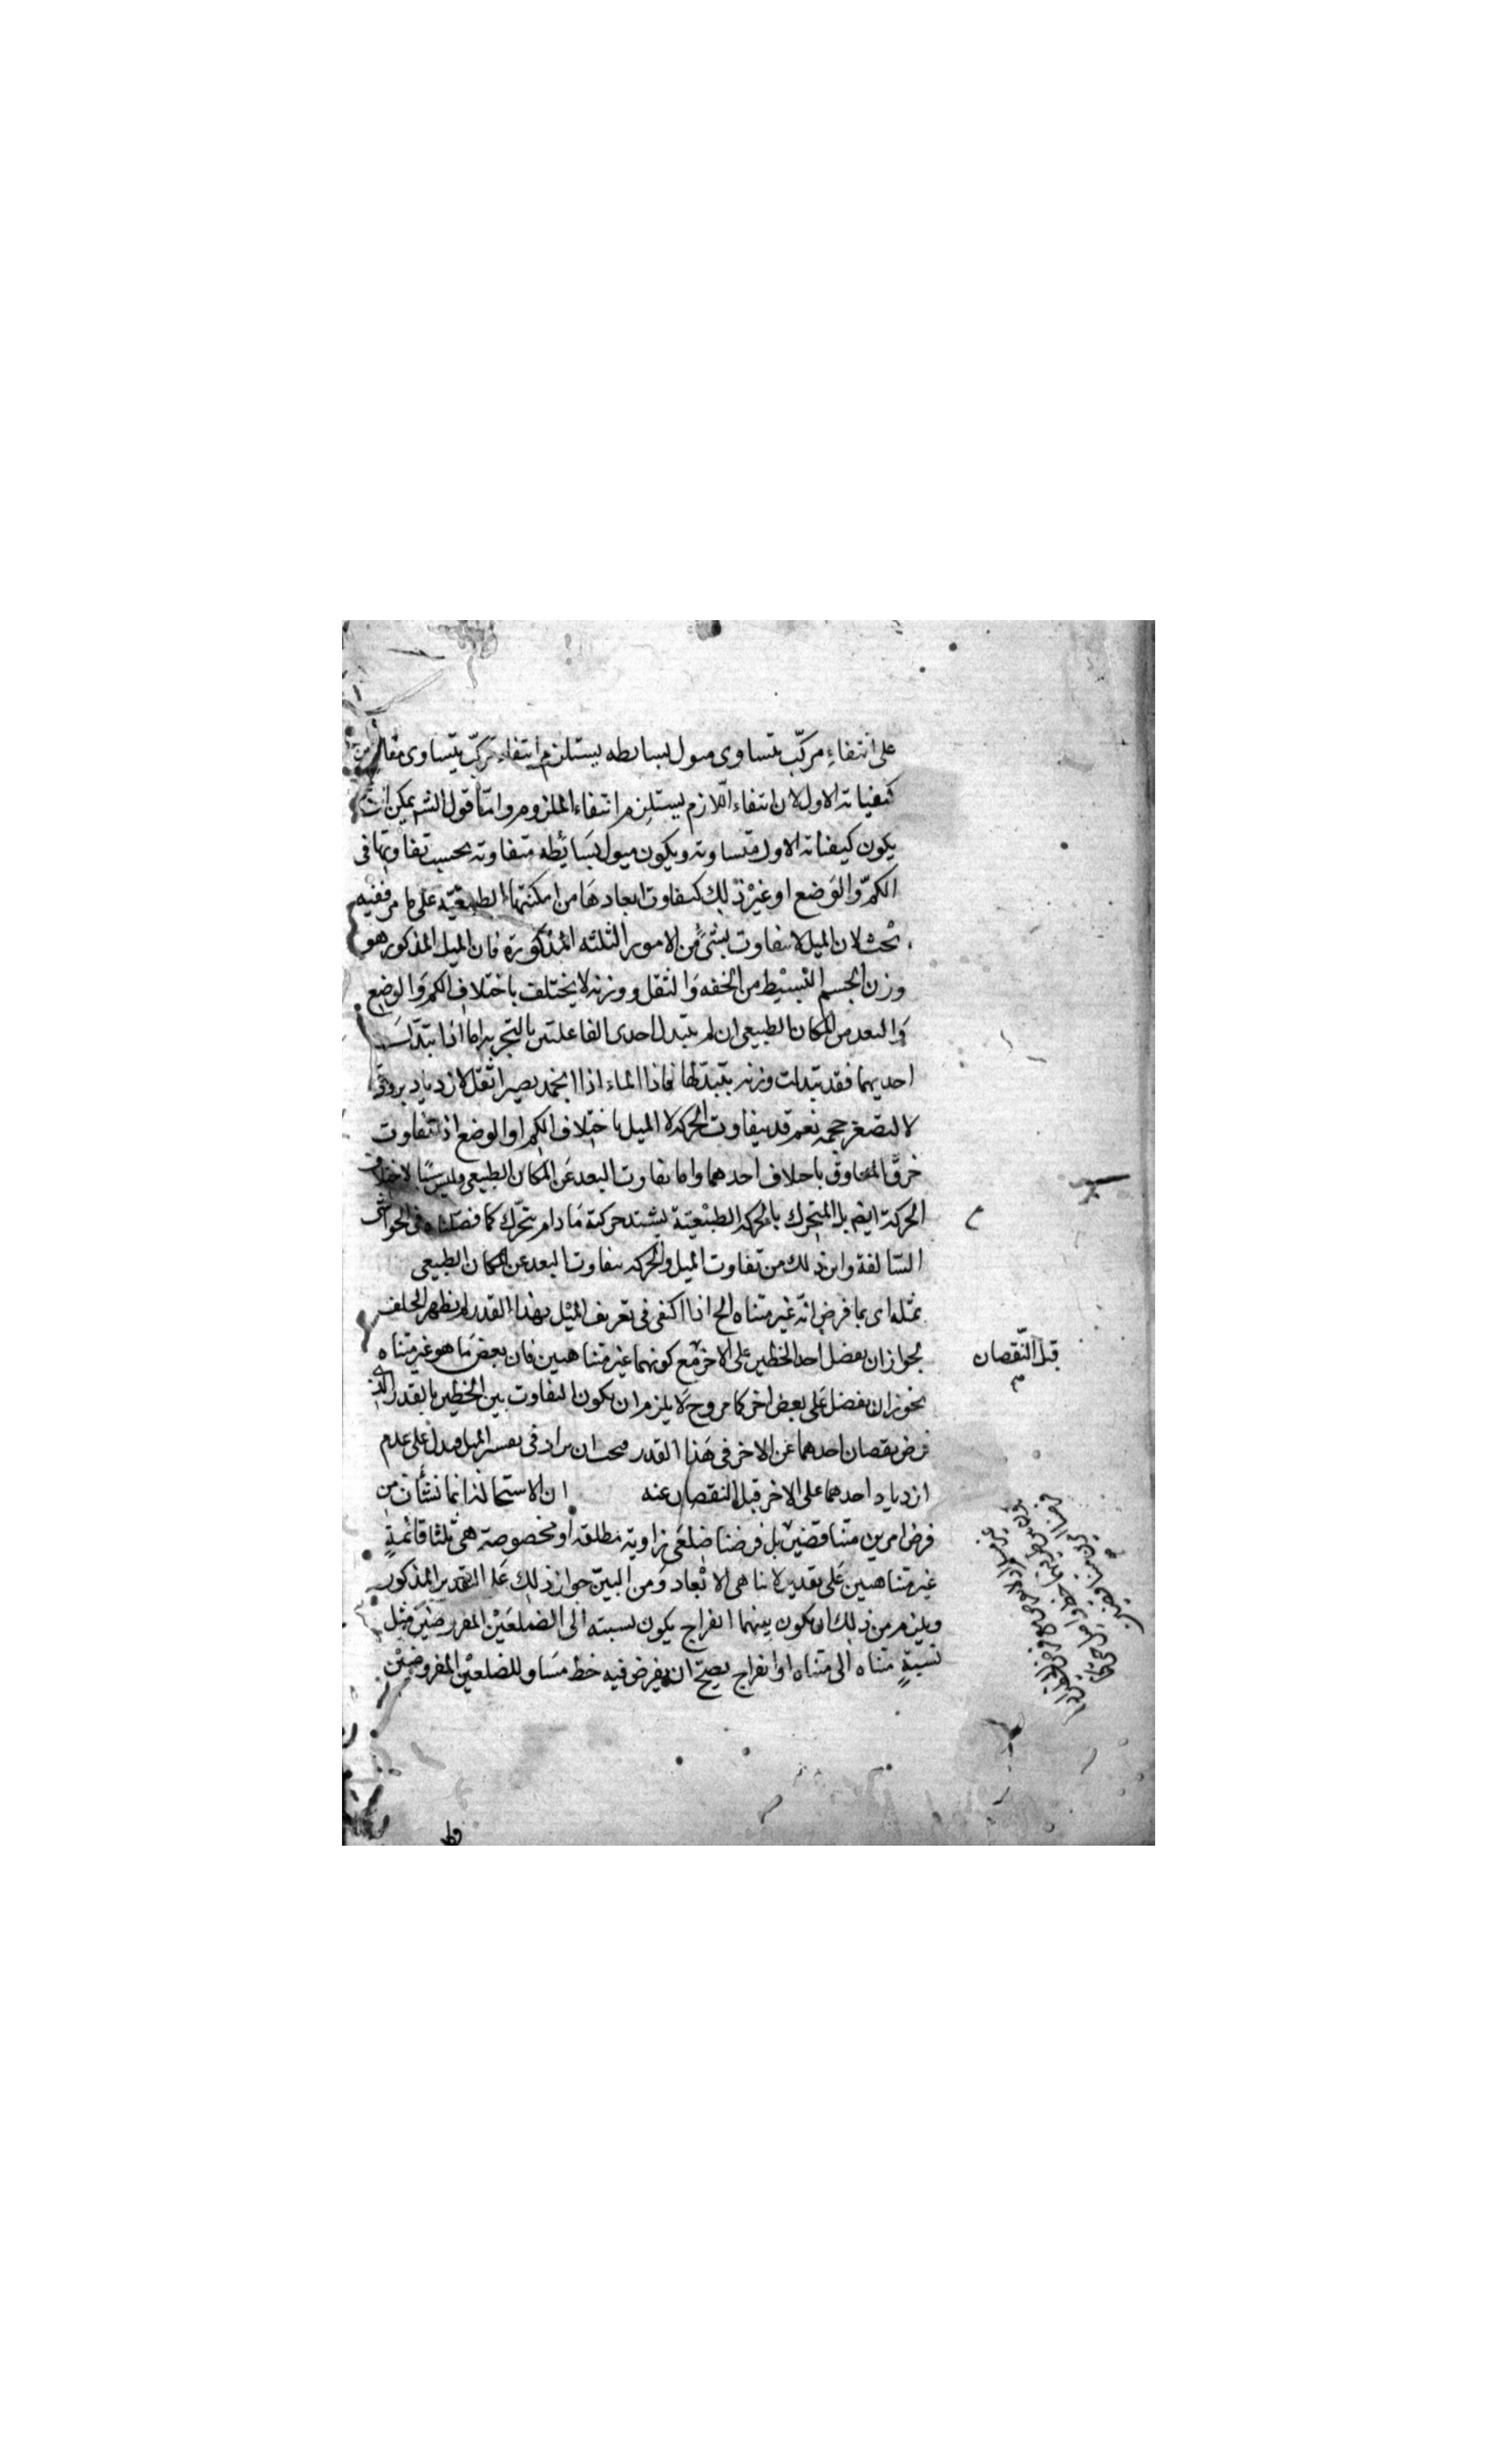 على انتفاءِ مركّب يتساوى ميول بسايطه يستلزم انتفاء مركّب يتساوى مقادير
كيفياته الاول لان انتفاء اللّازم يستلزم انتفاء الملزوم وامّا قول الش يمكن ان
يكون كيفياته الاول متساوية ويكون ميول بسائطه متفاوته بحسب تفاوتها فى
الكمّ والوَضع او غيْر ذلِك كتفاوت ابعادهَا من امكنتها الطبيعيّه على ما مر ففيْه
بْحث لان الميل لا يتفاوت بشئ من الامور الثلثه المذكورة فان الميل المذكور هو
وزن الجسم البسيْط من الخفه وَالثقل ووزنه لا يختلف باختلاف الكم وَالوضع
وَالبعد من المكان الطبيعى ان لم يتبدل احدى الفاعلتين بالتجربه اما اذا تبدّلت
احديهما فقد تبدلت وزنه بتبدّلها فاذا الماء اذا انجمد يصير اثقل لازدياد بروقة
لا لتصغر حجمه نعم قد يتفاوت الحركة لا الميل باختلاف الكم او الوضع اذ تتفاوت
خرق المعاوق باختلاف احدهما واما تفاوت البعد عَن المكان الطبيعى فليس سببًا لاختلاف
الحركة ايضا بل المتحرك بالحركة الطبْيعيّة يشتد حركته مَادام يتحّرك كما فصّلناه فى الحواشى
السّالفة واين ذلك من تفاوت الميل والحركه بتفاوت البعد عن المكان الطبيعى
بمثله اى بما فرض انّه غير متناه الخ اذا اكتفى فى تعريف الميْل بهذا القدر لم يظهر الخلف
لجواز ان يفضل احد الخطين على الاخر مْع كونهما غير متناهيين فان بعضَ مَا هو غير متناه
يجوز ان يفضل عَلى بعض اخر كما مر وح لَا يلزم ان يكون التفاوت بين الخطين بالقدر الذى
فرض نقصان احدهما عن الاخر فى هَذا القدر فيجب ان يراد فى تفسير الميل ويدل على عدم
ازدياد احدهما على الاخر قبل النقصان عنه ان الاستحالة انما نشأت من
فرض امرين متناقضيْن بل فرضنا ضلعَى زاوية مطلقه او مخصوصة هى ثلثا قائمةٍ
غير متناهيين عَلى تقدير لا تناهى الابْعاد وَمن البيّن جواز ذلِك عَلى التقدير المذكور
ويلزم من ذلِك ان يكون بينهما انفراج يكون نسبته الى الضلعَيْن المفروضيَن مثل
نسبةٍ متناه الى متناه او انفراج يصحّ ان يفرض فيه خط مسَاو للضلعيْن المفروضيْن
قبل النّقصان